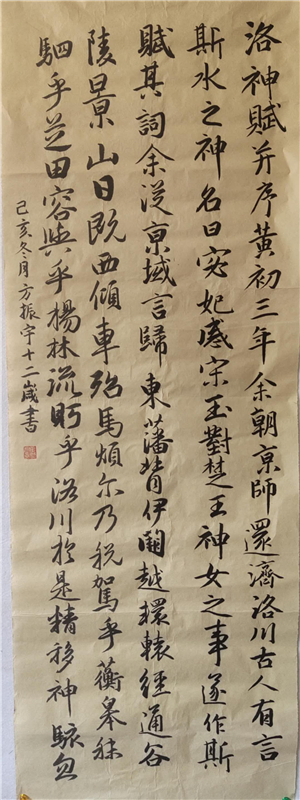 洛神賦并序黃初三年余朝京師還濟洛川古人有言
斯水之神名曰宓妃感宋玉對楚王神女之事遂作斯
賦其詞余從京域言歸東藩背伊闕越轘轅經通谷
陵景山日既西傾車殆馬煩尔乃稅駕乎蘅皋秣
駟乎芝田容與乎楊林流眄乎洛川於是精移神駭忽
己亥冬月方振宇十二歲書